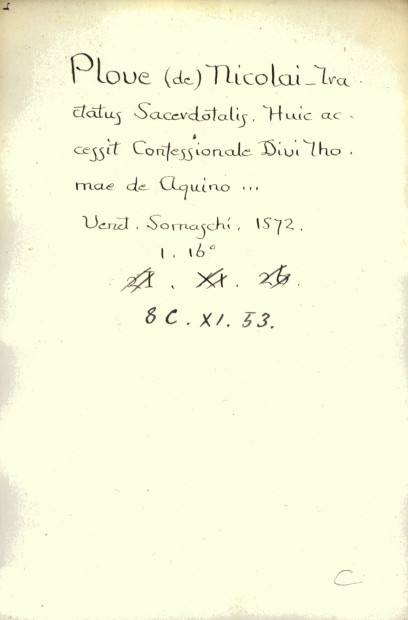 Plove (de) Nicolai _ Tra -
ctatus Sacerdotalis. Huic ac -
cessit Confessionale Divi Tho -
mae de Aquino ...
Venet. Somaschi, 1572.
1. 16°
21. XI. 26.
8 C. XI. 53.
C